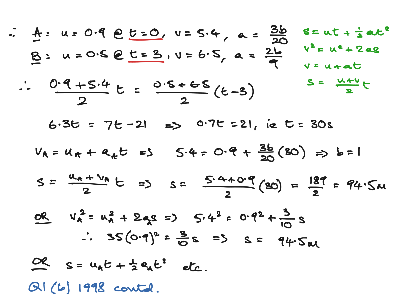 ∴ A: u = 0.9 @ t=0, v = 5.4, a = 3b/20 s = ut + ½at²
B: u = 0.5 @ t=3, v = 6.5, a = 2b/9 v² = u² + 2as
v = u + at
∴ (0.9 + 5.4)/2 t = (0.5 + 6.5)/2 (t-3) s = (u+v)/2 t
6.3t = 7t - 21 => 0.7t = 21, ie t = 30s
v_A = u_A + a_A t => 5.4 = 0.9 + 3b/20 (30) => b = 1
s = (u_A + v_A)/2 t => s = (5.4 + 0.9)/2 (30) = 189/2 = 94.5m
OR v_A² = u_A² + 2a_A s => 5.4² = 0.9² + 3/10 s
∴ 35(0.9)² = 3/10 s => s = 94.5m
OR s = u_A t + ½ a_A t² etc.
Q1 (b) 1998 contd.